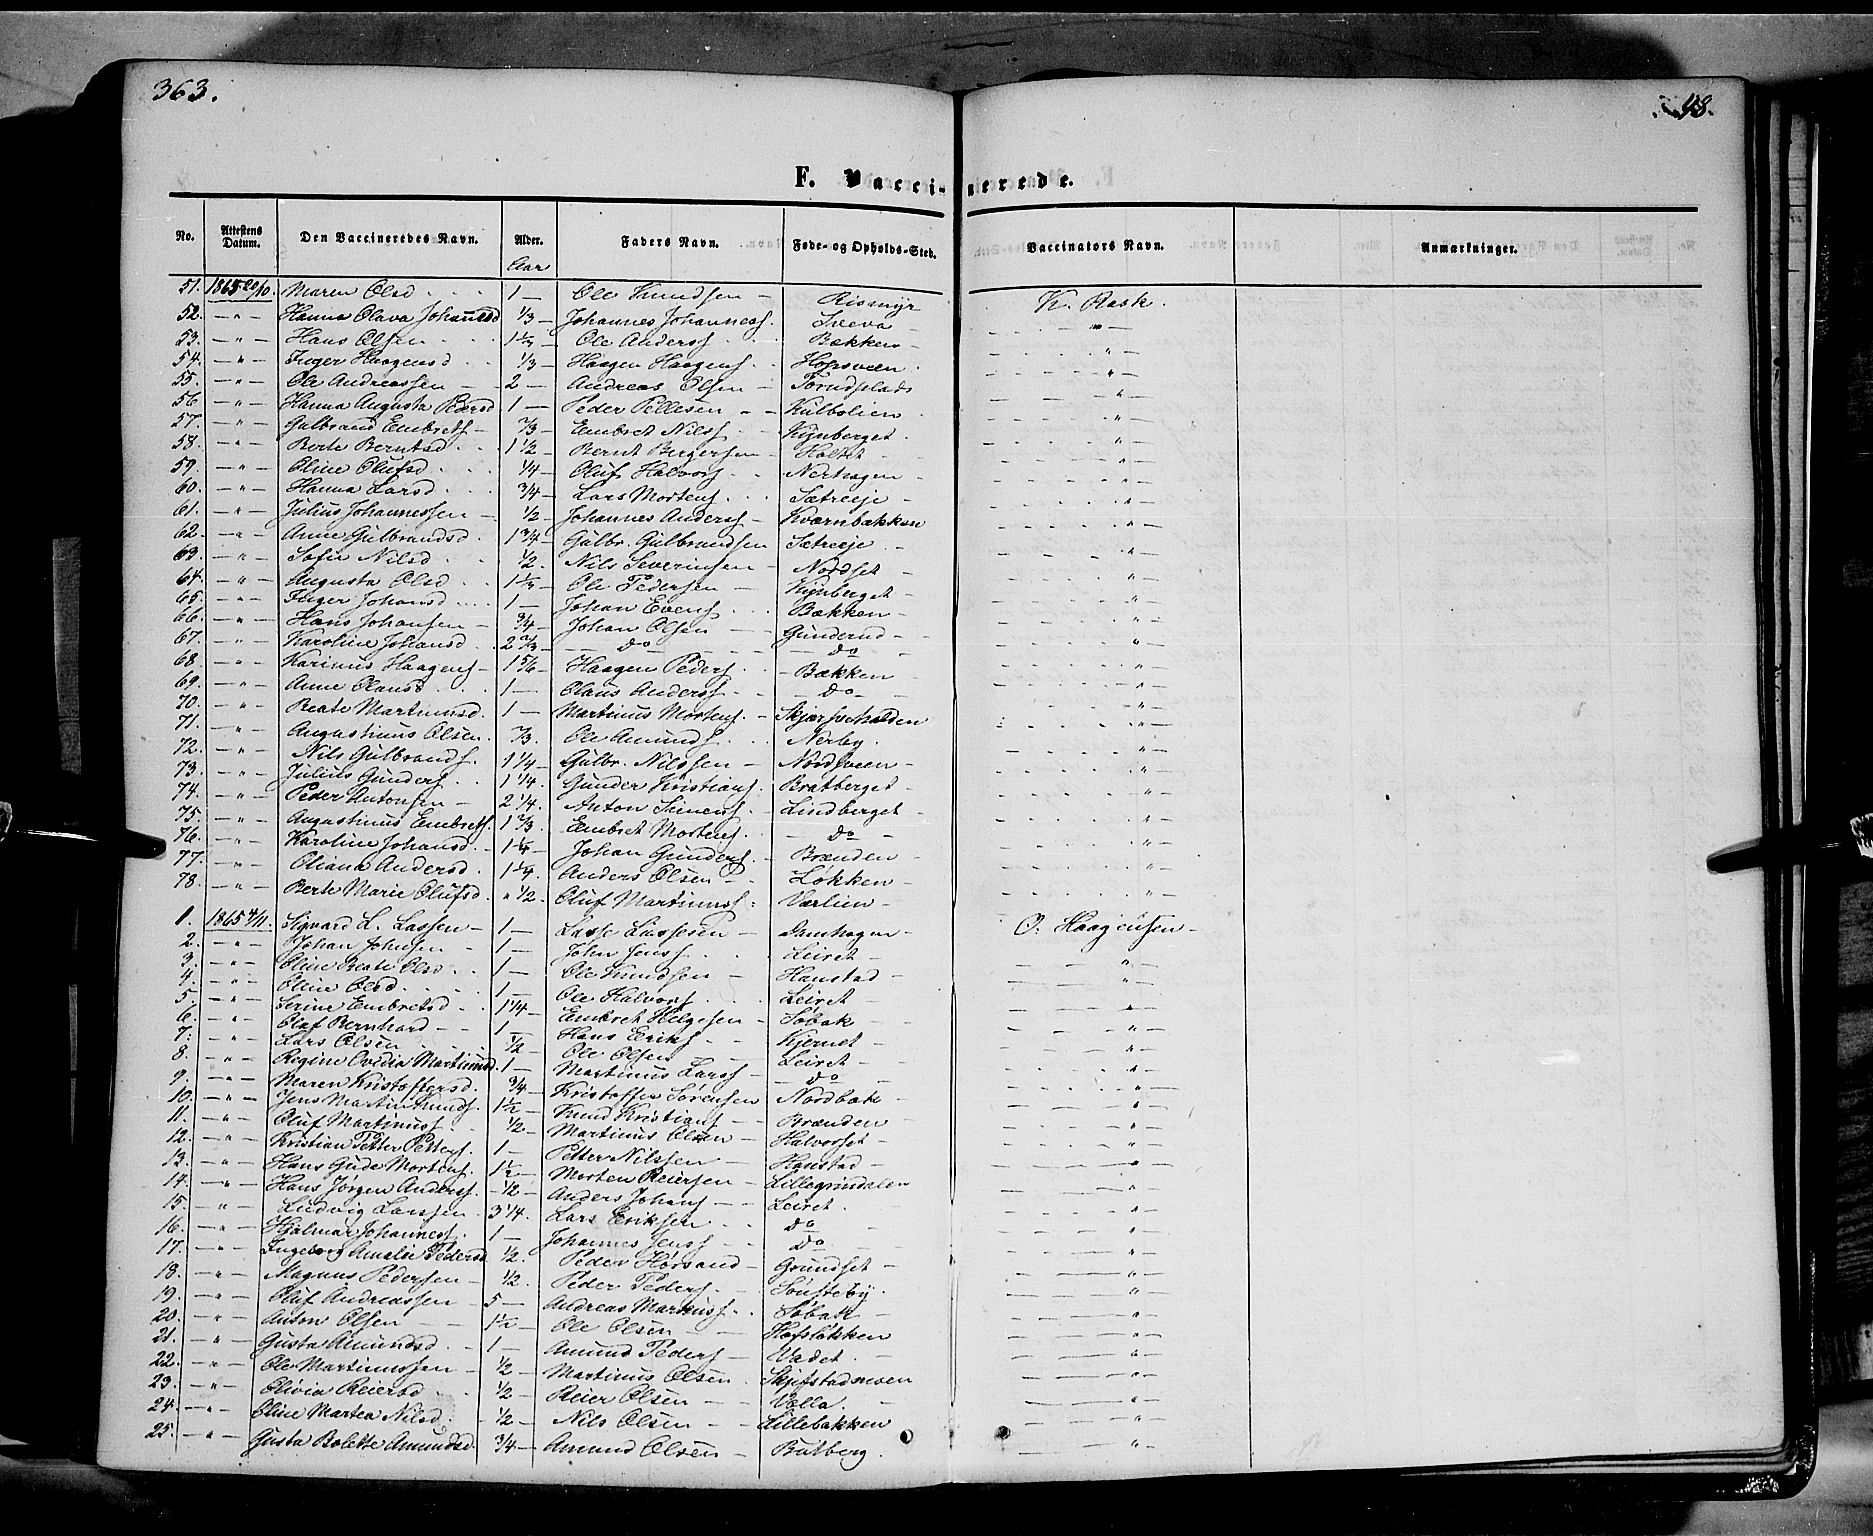 363.
F. Vaccinerede.
No. Attestens Datum. Den Vaccineredes Navn. Alder. Faders Navn. Føde- og Opholds-Sted. Vaccinators Navn. Anmærkninger.
Aar
51. 1865 20/10. Maren Olsd 1 — Ole Knudsen — Rismyr K. Rask.
52. — " — Hanna Olava Johannesd 1/3 — Johannes Johannesf. Sveva — " —
53. — " — Hans Olsen 1 1/2 — Ole Andersf Bækken — " —
54. — " — Inger Haagensd 1/3 — Haagen Haagensf. Hopsveen. " —
55. — " — Ole Andreassen — 2 — Andreas Olsen — Torudsplads " —
56. — " — Hanna Augusta Pedersd 1 — Peder Pellesen — Kulbolien " —
57. — " — Gulbrand Embretsf — 2/3 — Embret Nilsf Kynberget. " —
58. — " — Berte Berntsd 1 1/2 — Bernt Bergersen — Holtet — " —
59. — " — Oline Olufsd 1/4 — Oluf Halvorsf — Nerhagen — " —
60. — " — Hanna Larsd 3/4 — Lars Mortensf. Sætreeje — " —
61. — " — Julius Johannessen — 1/2 — Johannes Andersf — Kværnbækken " —
62. — " — Anne Gulbrandsd 1 3/4 — Gulbr. Gulbrandsen Sætreeje. " —
63. — " — Sofie Nilsd 1/2 — Nils Severinsen — Nordset — " —
64. — " — Augusta Olsd 1 1/2 — Ole Pedersen — Kynberget — " —
65. — " — Inger Johansd 1 — Johan Evensf Bækken — " —
66. — " — Hans Johansen — 3/4 — Johan Olsen — Gunderud — " —
67. — " — Karoline Johansd 2 2/3 — do — do — " —
68. — " — Karinus Haagensf — 1 5/6 — Haagen Pedersf. — Bækken — " —
69. — " — Anne Olausd 1 — Olaus Andersf — do — " —
70. — " — Beate Martinusd. 1 — Martinus Mortensf. — Skjærpeholden " —
71. — " — Augustinus Olsen. 2/3. Ole Amundsf. Nerby. " —
72. — " — Nils Gulbrandsf. 1 1/4 — Gulbr. Nilssen — Nordsveen — " —
73. — " — Julius Gundersf. 1 1/4. Gunder Kristiansf. Bratberget — " —
74. — " — Peder Antonsen — 2 1/4. Anton Simensf. Lindberget — " —
75. — " — Augustinus Embretsf. 1 2/3. Embret Mortensf. — do — " —
76. — " — Karoline Johansd. 1 1/4 — Johan Gundersf. — Brænden — " —
77. — " — Oliana Andersd. 1 1/4. Anders Olsen — Løkken — " —
78. — " — Berte Marie Olufsd " 1/2. Oluf Martinusf. Værlien — " —
1. 1865 4/11. Sigvard L. Lassen — 1 — Lasse Lassesen — Damhagen — O. Haagensen —
2. — " — Johan Johnsen — 1 — John Jensf. — Leiret — " —
3. — " — Oline Beate Olsd 1 — Ole Knudsen — Hanstad — " —
4. — " — Oline Olsd. 1 — Ole Halvorsf. Leiret — " —
5. — " — Serine Embretsd — 1 1/4 — Embret Helgesen — Søbak — " —
6. — " — Olaf Bernhard — 1 — Hans Eriksf. — Kjernet — " —
7. — " — Lars Olsen 1/2 — Ole Olsen Leiret — " —
8. — " — Regine Ovidia Martinusd. 1 — Martinus Larsf — do — " —
9. — " — Maren Kristoffersd. 3/4 — Kristoffer Sørensen Nordbak — " —
10. — " — Jens Martin Knudsf. 1 1/2 — Knud Kristiansf — Brænden — " —
11. — " — Oluf Martinusf. 1/2 — Martinus Olsen — Halvorset — " —
12. — " — Kristian Petter Pettersf. 1 — Petter Nilssen — Hanstad — " —
13. — " — Hans Gude Mortensf. 1 1/2 — Morten Reiersen — Lillegrindalen " —
14. — " — Hans Jørgen Andersf. — 1/2 — Anders Johansf — Leiret. " —
15. " Ludvig Larssen 3 1/4. Lars Eriksen — do " —
16. — " — Hjalmar Johannesf. 1 — Johannes Jensf — do. " —
17. — " — Ingeborg Amalie Pedersd 1/2. Peder Hørsand — Grundset — " —
18. — " — Magnus Pedersen — 1/2. Peder Pedersf. Sønsteby. " —
19. — " — Oluf Andreassen — 5 — Andreas Markusf. Søbak — " —
20. — " — Anton Olsen — 1 1/2 — Ole Olsen — Hofsløkken " —
21. — " — Gusta Amundsd. 1 — Amund Pedersf — Vadet. — " —
22. — " — Ole Martinussen — 1/2 — Martinus Olsen. Skjefstadmoen " —
23. — " — Olivia Reiersd 1/2 — Reier Olsen — Volla. " —
24. — " — Oline Martea Nilsd. 1/2 — Nils Olsen — Lillebakken " —
25. — " — Gusta Bolette Amundsd. 3/4 — Amund Olsen — Butberg. " —